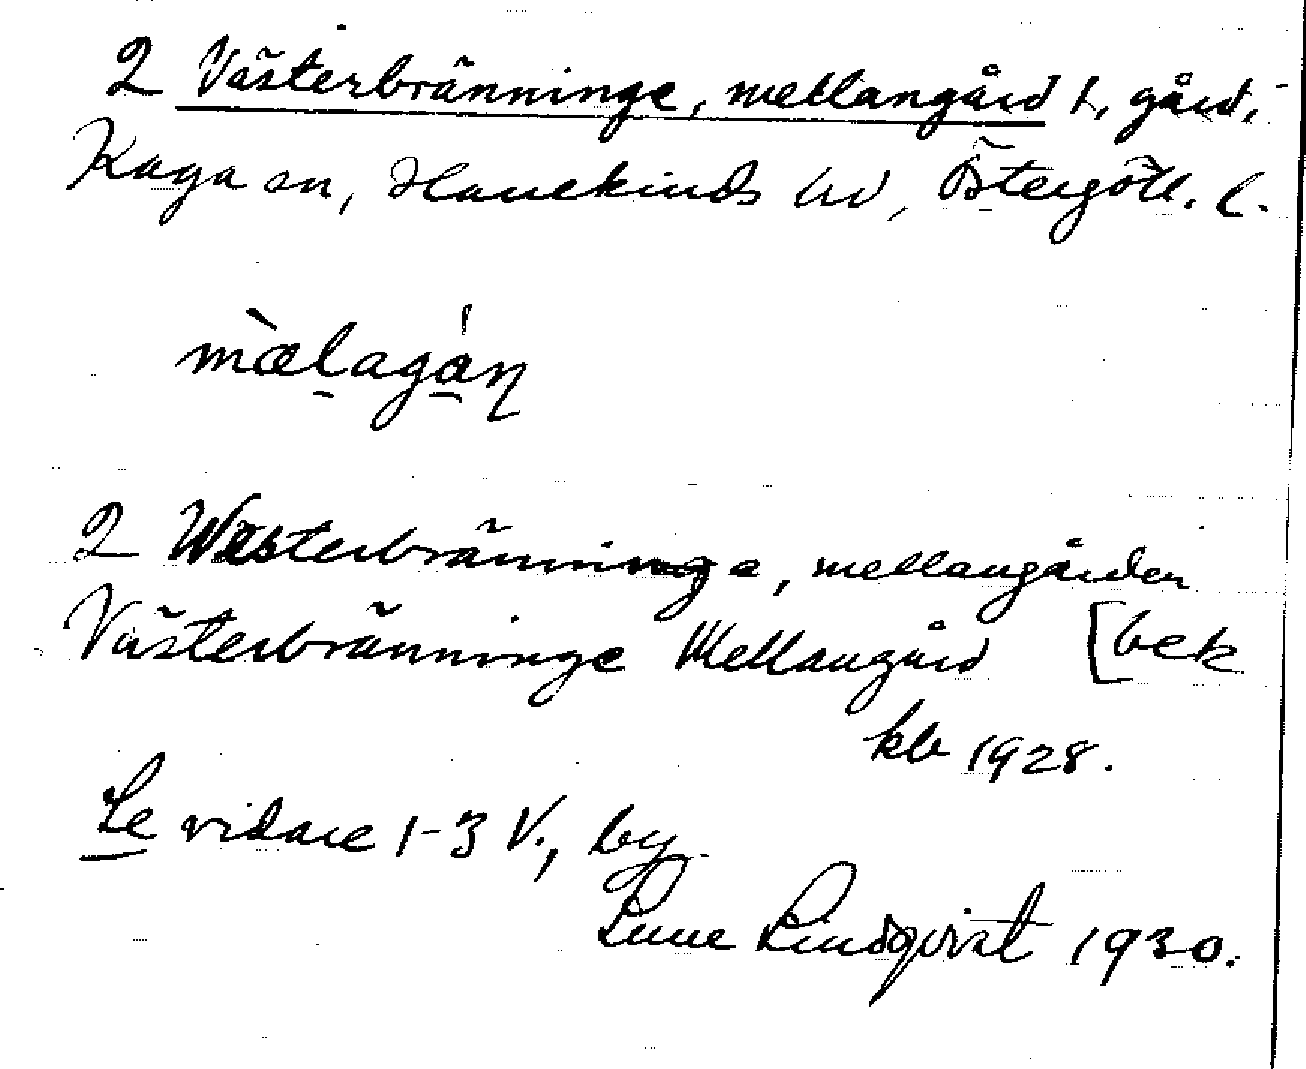 2 Västerbränninge, mellangård t, gård,
Kaga sn, Hanekinds hd, Östergötl. l.
mæ̀lagán
2 Wästerbränninge, mellangården
Västerbränninge Mellangård [bek
kb 1928.
Se vidare 1-3 V., by
Sune Lindqvist 1930.